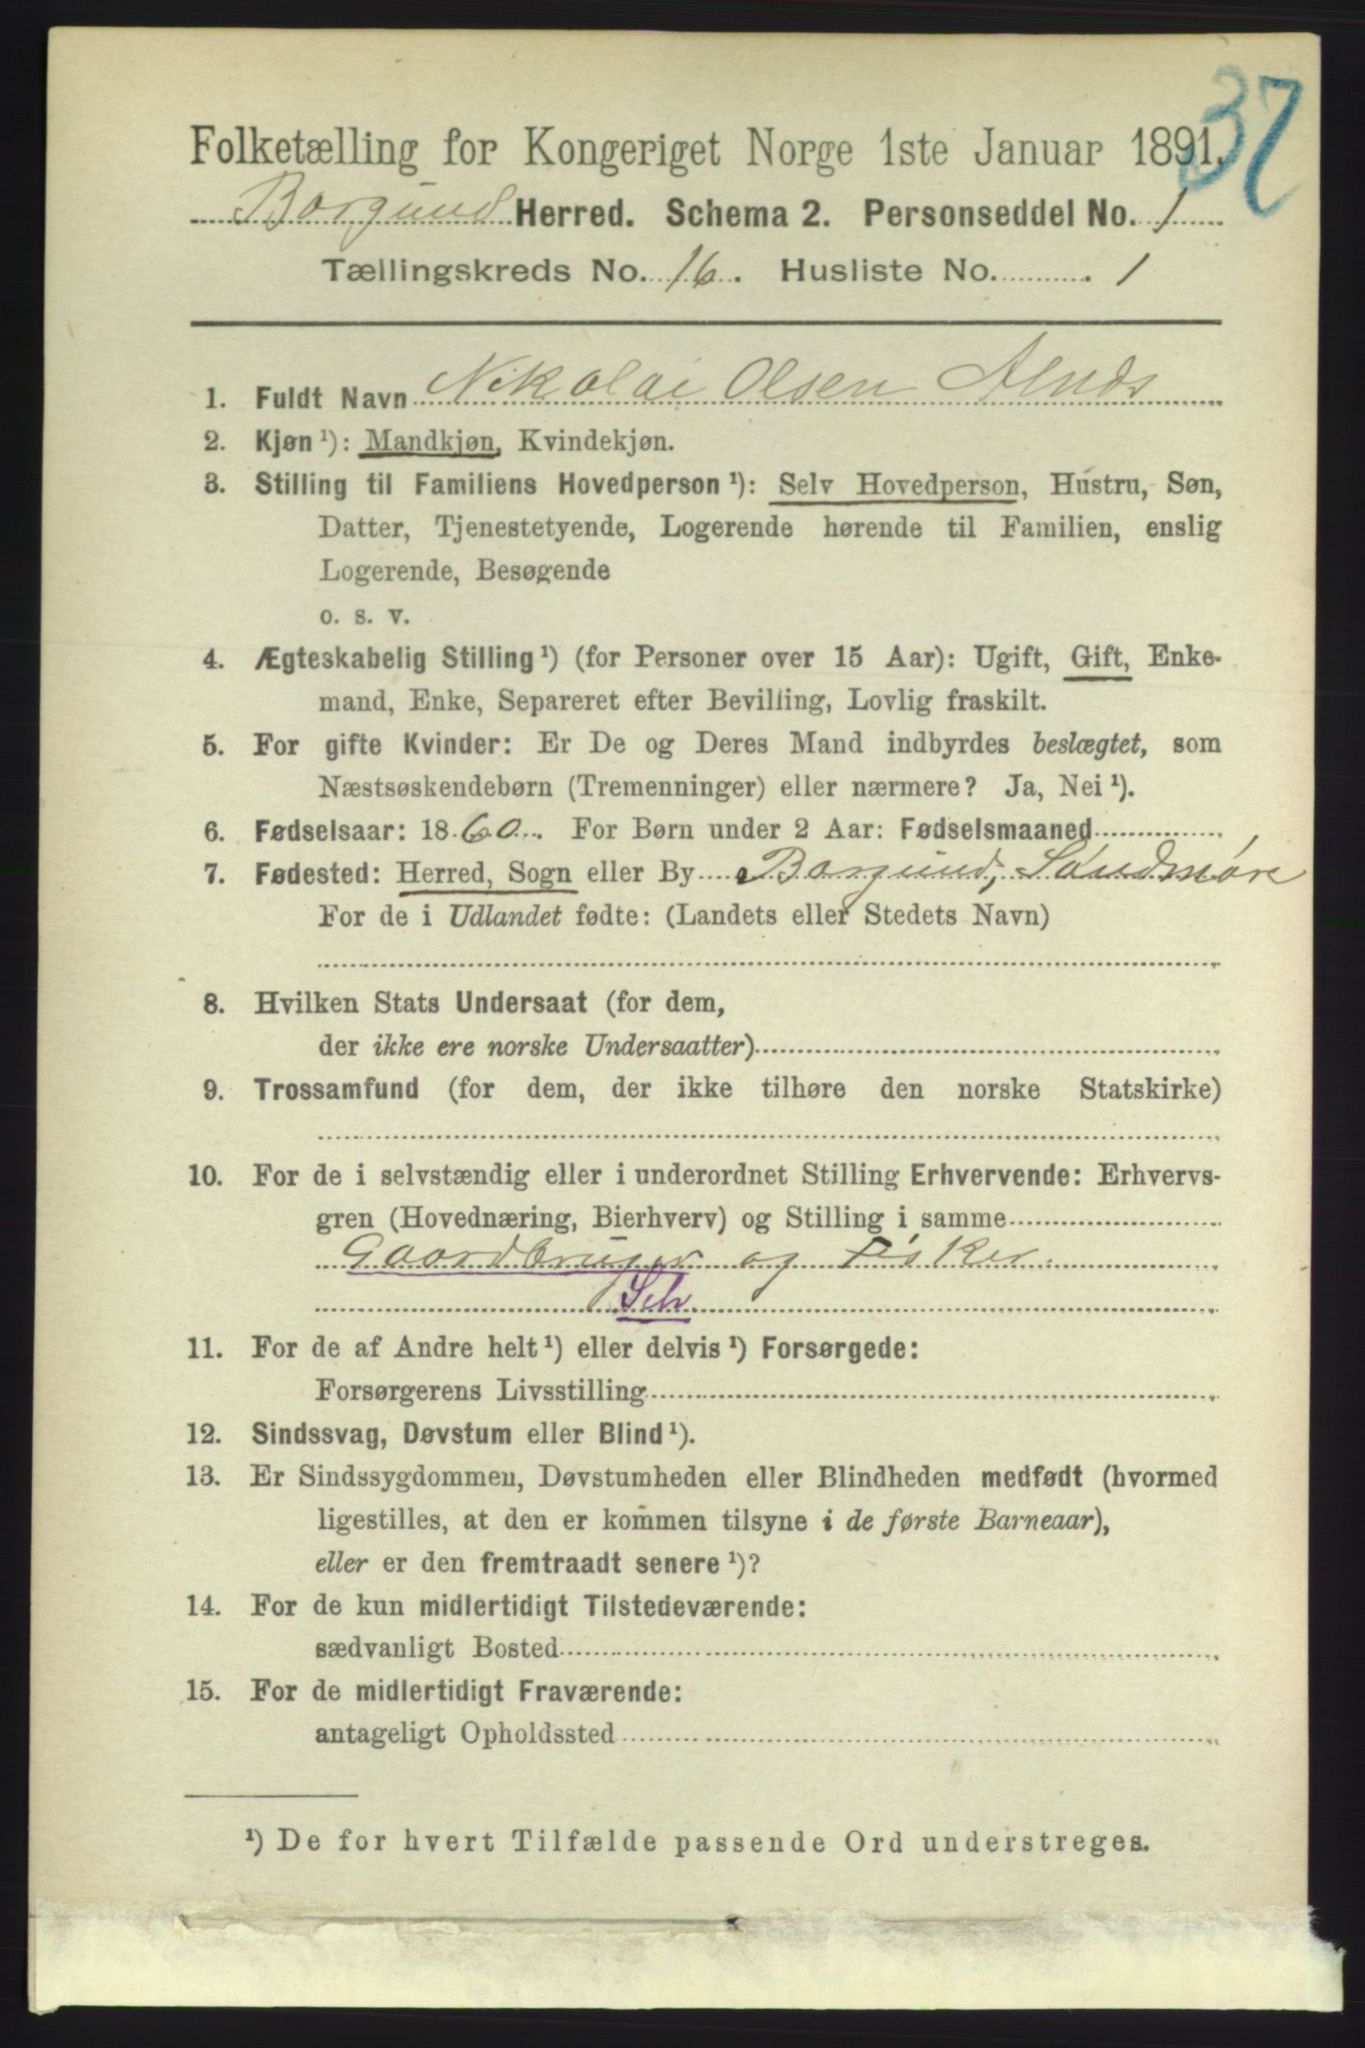 37
Folketælling for Kongeriget Norge 1ste Januar 1891.
Borgund Herred. Schema 2. Personseddel No. 1
Tællingskreds No. 16. Husliste No. 1
1. Fuldt Navn Nikolai Olsen Alnds
2. Kjøn ¹): Mandkjøn, Kvindekjøn.
3. Stilling til Familiens Hovedperson ¹): Selv Hovedperson, Hustru, Søn,
Datter, Tjenestetyende, Logerende hørende til Familien, enslig
Logerende, Besøgende
o. s. v.
4. Ægteskabelig Stilling ¹) (for Personer over 15 Aar): Ugift, Gift, Enke-
mand, Enke, Separeret efter Bevilling, Lovlig fraskilt.
5. For gifte Kvinder: Er De og Deres Mand indbyrdes beslægtet, som
Næstsøskendebørn (Tremenninger) eller nærmere? Ja, Nei ¹).
6. Fødselsaar: 1860. For Børn under 2 Aar: Fødselsmaaned
7. Fødested: Herred, Sogn eller By Borgund, Søndmøre
For de i Udlandet fødte: (Landets eller Stedets Navn)
8. Hvilken Stats Undersaat (for dem,
der ikke ere norske Undersaatter)
9. Trossamfund (for dem, der ikke tilhøre den norske Statskirke)
10. For de i selvstændig eller i underordnet Stilling Erhvervende: Erhvervs-
gren (Hovednæring, Bierhverv) og Stilling i samme
Gaardbruger og Fisker.
Selv
11. For de af Andre helt ¹) eller delvis ¹) Forsørgede:
Forsørgerens Livsstilling
12. Sindssvag, Døvstum eller Blind ¹).
13. Er Sindssygdommen, Døvstumheden eller Blindheden medfødt (hvormed
ligestilles, at den er kommen tilsyne i de første Barneaar),
eller er den fremtraadt senere ¹)?
14. For de kun midlertidigt Tilstedeværende:
sædvanligt Bosted
15. For de midlertidigt Fraværende:
antageligt Opholdssted
¹) De for hvert Tilfælde passende Ord understreges.